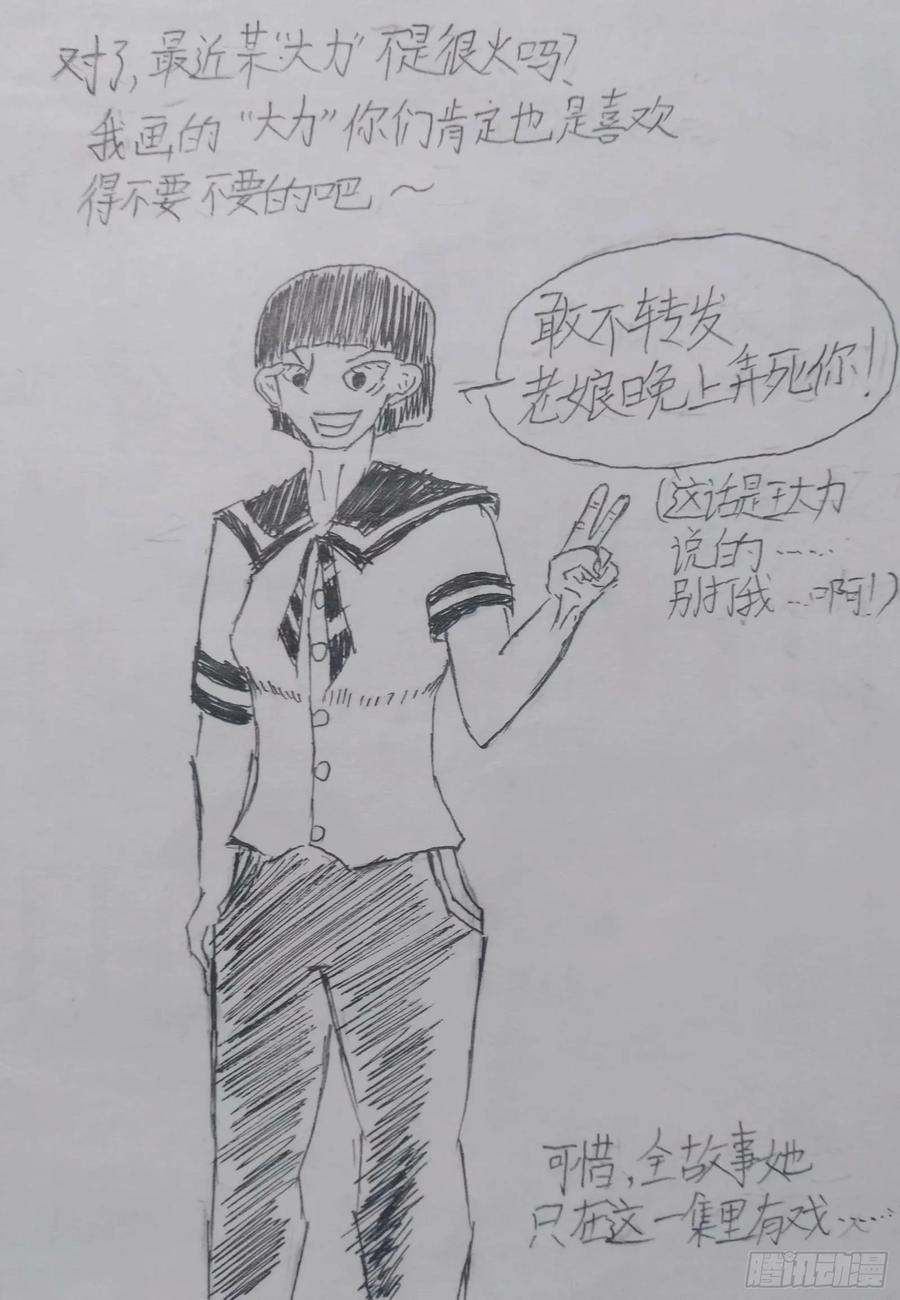 对了,最近某"大力"不是很火吗?
我画的"大力"你们肯定也是喜欢
得不要不要的吧~
敢不转发
老娘晚上弄死你!
(这话是王大力
说的……
别打我…啊!)
可惜,全故事她
只在这一集里有戏……
腾讯动漫